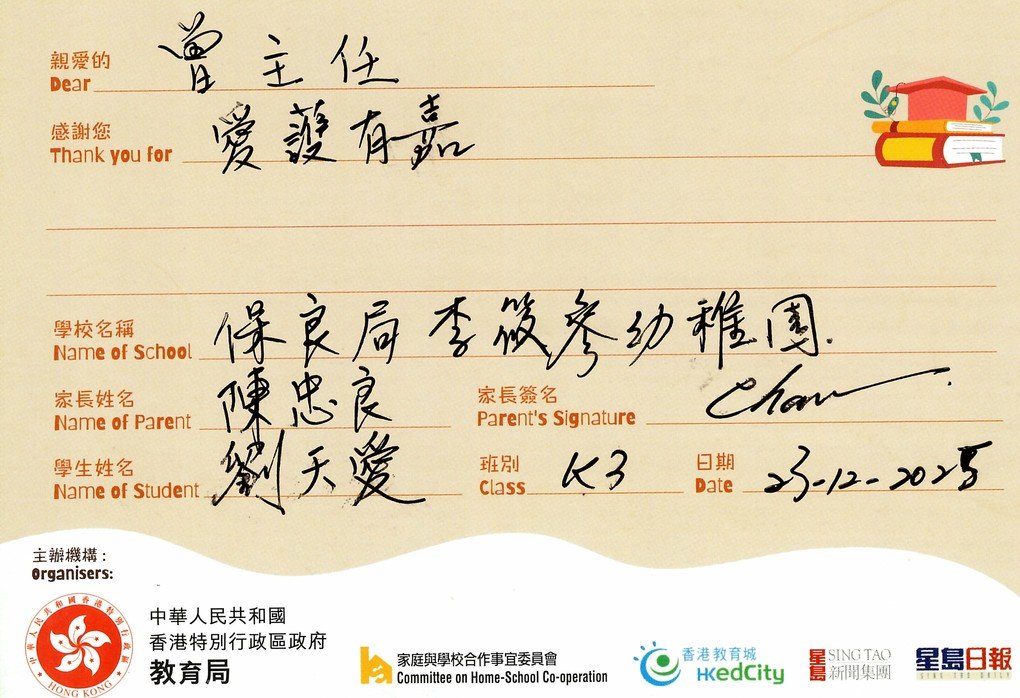 親愛的 曾主任
Dear
感謝您 愛護有嘉
Thank you for
學校名稱 保良局李筱參幼稚園.
Name of School
家長姓名 陳忠良 家長簽名 Chan
Name of Parent Parent's Signature
學生姓名 劉天愛 班別 K3 日期 23-12-2025
Name of Student Class Date
主辦機構：
Organisers:
中華人民共和國香港特別行政區政府
HONG KONG
中華人民共和國
香港特別行政區政府
教育局
家庭與學校合作事宜委員會
Committee on Home-School Co-operation
香港教育城
HKedCity
星島 SING TAO
新聞集團
星島日報
SING TAO DAILY